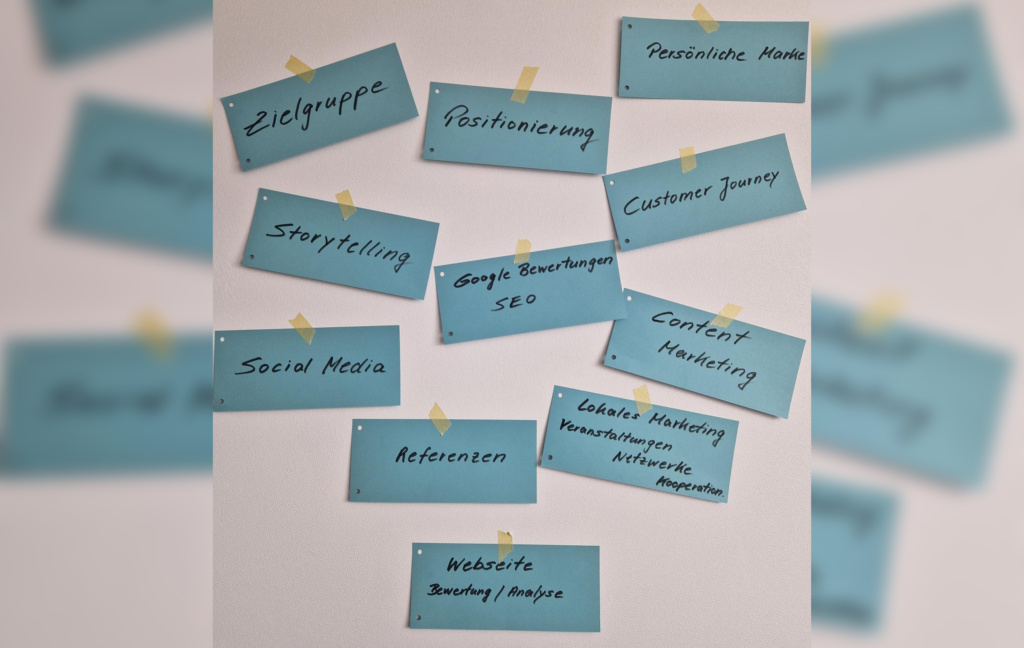 Persönliche Marke
Zielgruppe
Positionierung
Customer Journey
Storytelling
Google Bewertungen
SEO
Content
Marketing
Social Media
Lokales Marketing
Veranstaltungen
Netzwerke
Kooperation.
Referenzen
Webseite
Bewertung / Analyse